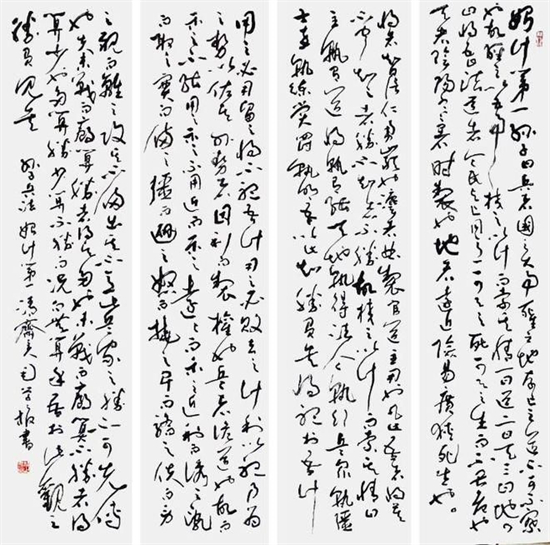 始計第一孫子曰兵者國之大事死生之地存亡之道不可不察
也故經之以五事校之以計而索其情一曰道二曰天三曰地四曰
將五曰法道者令民與上同意可與之死可與之生而不畏危也
天者陰陽寒暑時製也地者遠近險易廣狹死生也
將者智信仁勇嚴也法者曲製官道主用也凡此五者將莫
不聞知之者勝不知者不勝故校之以計而索其情曰
主孰有道將孰有能天地孰得法令孰行兵眾孰強
士卒孰練賞罰孰明吾以此知勝負矣將聽吾計
用之必勝留之將不聽吾計用之必敗去之計利以聽乃為
之勢以佐其外勢者因利而製權也兵者詭道也故能而
示之不能用而示之不用近而示之遠遠而示之近利而誘之亂
而取之實而備之強而避之怒而撓之卑而驕之佚而勞
之親而離之攻其不備出其不意此兵家之勝不可先傳
也夫未戰而廟算勝者得算多也未戰而廟算不勝者得
算少也多算勝少算不勝而況於無算乎吾於此觀之
勝負見矣孫子兵法始計第一馮齋夫書